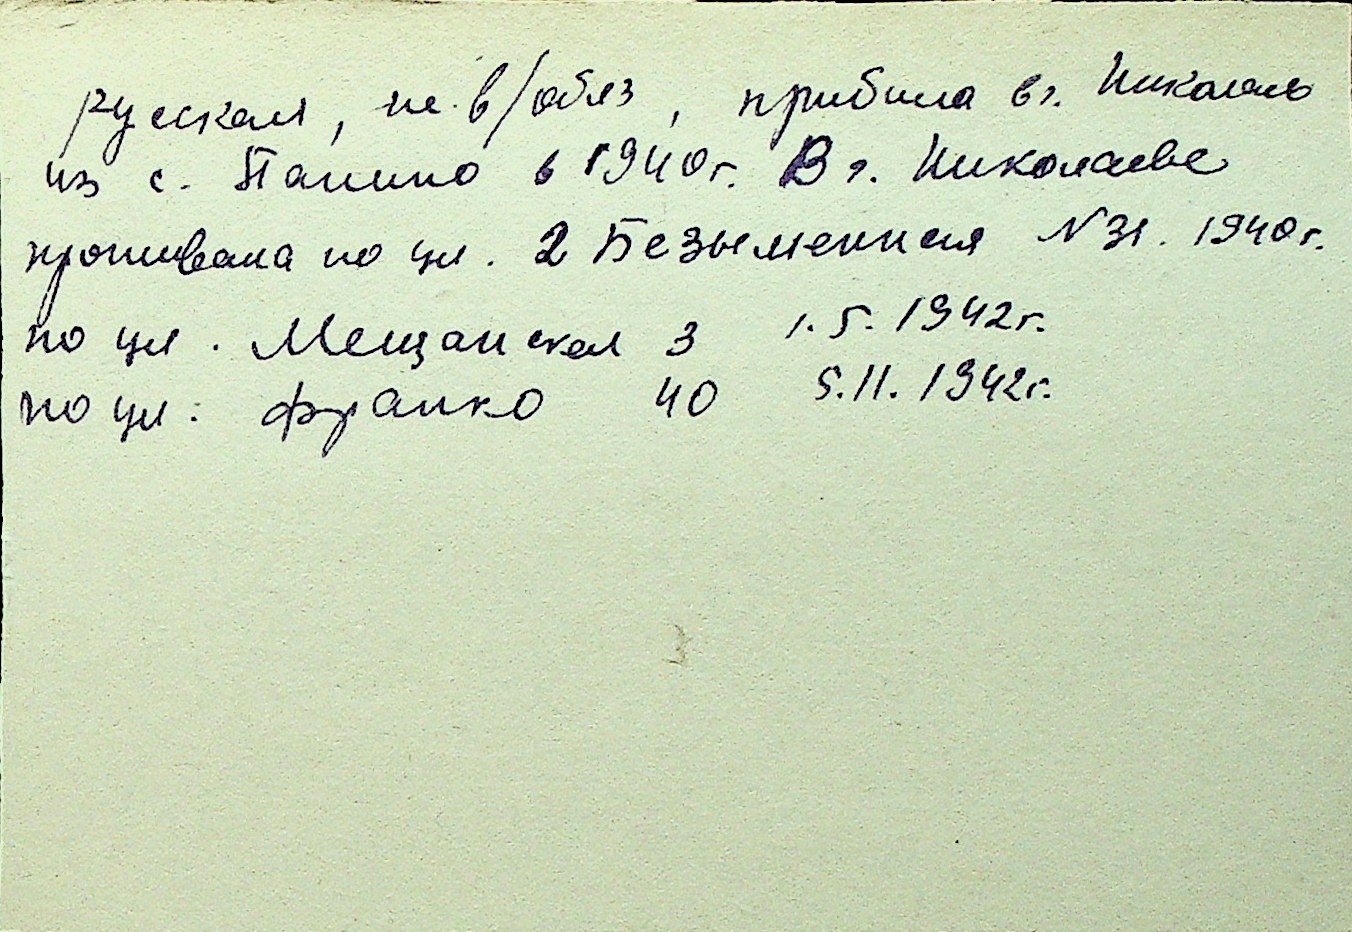 русская, не в/обяз, прибыла в г. Николаев
из с. Панино в 1940г. В г. Николаеве
проживала по ул. 2 Безыменная N 31. 1940г.
по ул. Мещанская 3 1.5.1942г.
по ул. Франко 40 5.11.1942г.